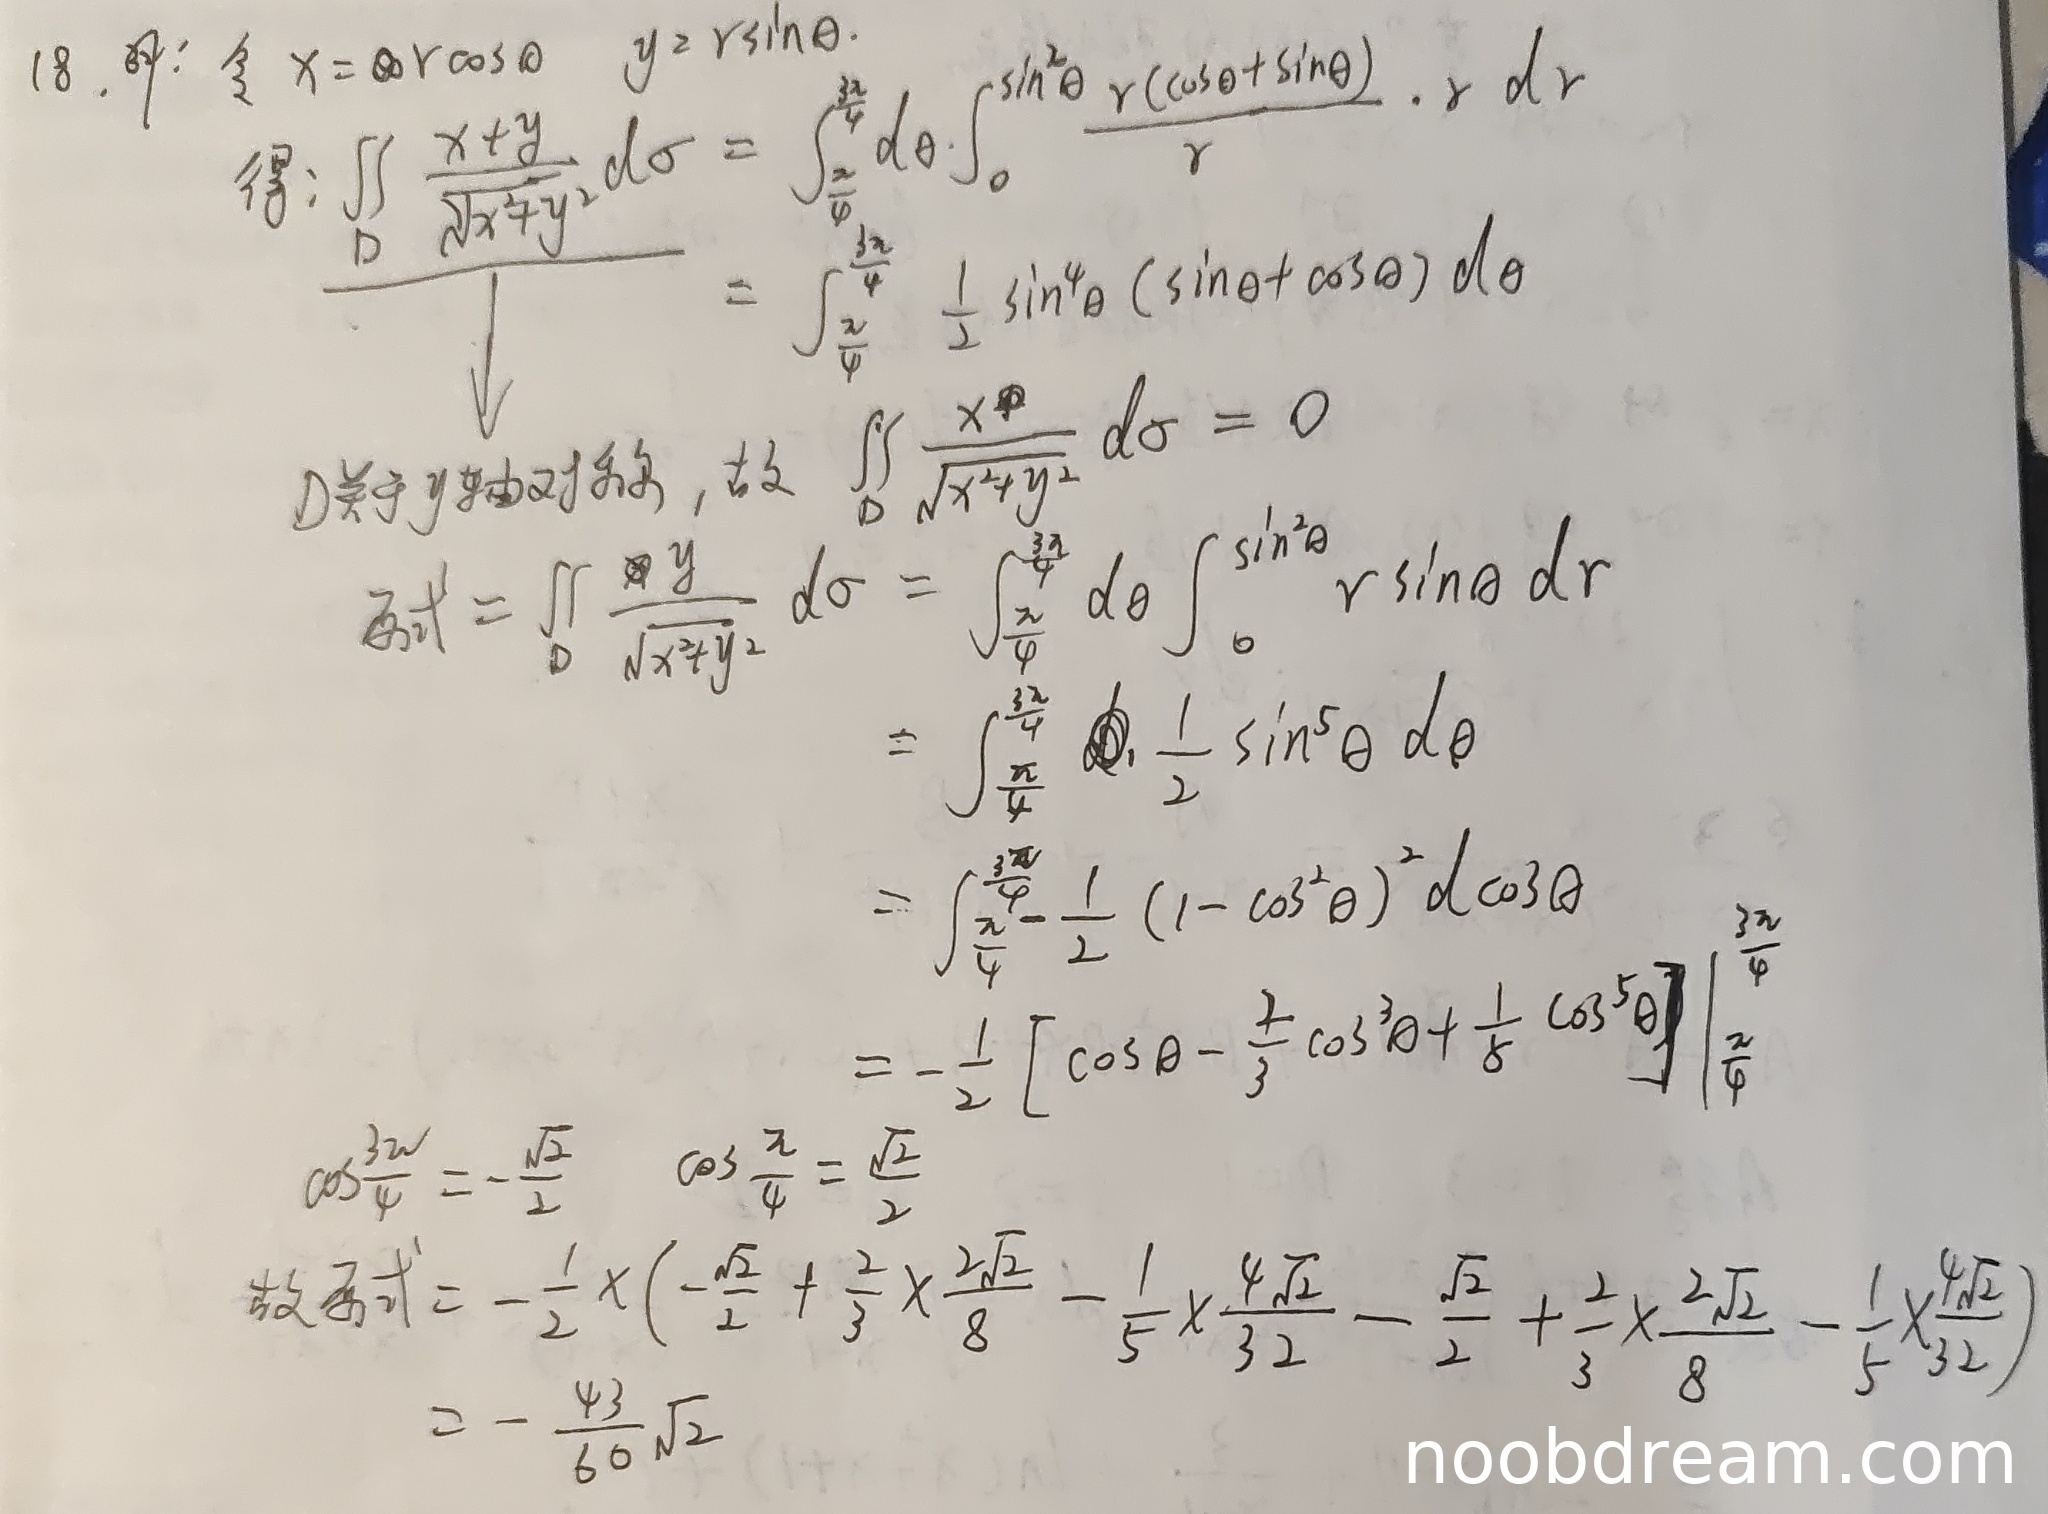 18. 解: 令 x = r cosθ  y = r sinθ.
得: ∬_D (x+y)/√(x²+y²) dσ = ∫_{π/4}^{3π/4} dθ · ∫_0^{sin²θ} r(cosθ+sinθ)/r · r dr
= ∫_{π/4}^{3π/4} 1/2 sin⁴θ (sinθ+cosθ) dθ
D关于y轴对称, 故 ∬_D x/√(x²+y²) dσ = 0
原式 = ∬_D y/√(x²+y²) dσ = ∫_{π/4}^{3π/4} dθ ∫_0^{sin²θ} r sinθ dr
= ∫_{π/4}^{3π/4} 1/2 sin⁵θ dθ
= ∫_{π/4}^{3π/4} -1/2 (1-cos²θ)² d cosθ
= -1/2 [cosθ - 2/3 cos³θ + 1/5 cos⁵θ] |_{π/4}^{3π/4}
cos 3π/4 = -√2/2  cos π/4 = √2/2
故原式 = -1/2 × (-√2/2 + 2/3 × 2√2/8 - 1/5 × 4√2/32 - √2/2 + 2/3 × 2√2/8 - 1/5 × 4√2/32)
= - 43/60 √2
noobdream.com